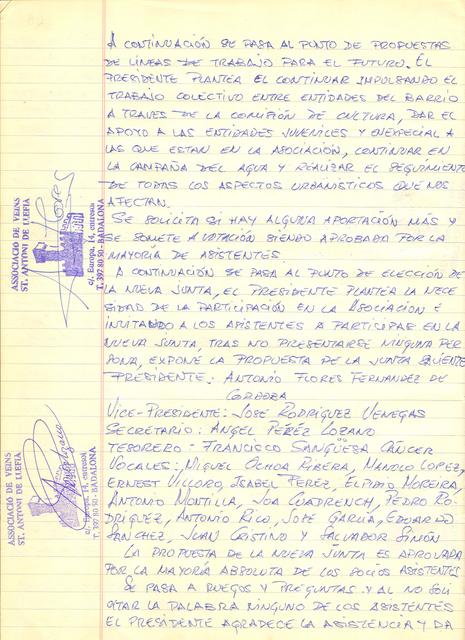 A CONTINUACIÓN SE PASA AL PUNTO DE PROPUESTAS
DE LÍNEAS DE TRABAJO PARA EL FUTURO. ÉL
PRESIDENTE PLANTEA EL CONTINUAR IMPULSANDO EL
TRABAJO COLECTIVO ENTRE ENTIDADES DEL BARRIO
A TRAVES DE LA COMISIÓN DE CULTURA, DAR EL
APOYO A LAS ENTIDADES JUVENILES Y EN ESPECIAL A
LAS QUE ESTAN EN LA ASOCIACIÓN, CONTINUAR EN
LA CAMPAÑA DEL AGUA Y REALIZAR EL SEGUIMIENTO
DE TODOS LOS ASPECTOS URBANISTICOS QUE NOS
AFECTAN.
SE SOLICITA SI HAY ALGUNA APORTACIÓN MÁS Y
SE SOMETE A VOTACIÓN SIENDO APROBADA POR LA
MAYORIA DE ASISTENTES
A CONTINUACIÓN SE PASA AL PUNTO DE ELECCIÓN DE
LA NUEVA JUNTA, EL PRESIDENTE PLANTEA LA NECE
SIDAD DE LA PARTICIPACIÓN EN LA ASOCIACION E
INVITANDO A LOS ASISTENTES A PARTICIPAR EN LA
NUEVA JUNTA, TRAS NO PRESENTARSE NINGUNA PER
SONA, EXPONE LA PROPUESTA DE LA JUNTA SIGUIENTE
PRESIDENTE: ANTONIO FLORES FERNANDEZ DE
CORDOBA
VICE-PRESIDENTE: JOSÉ RODRÍGUEZ VENEGAS
SECRETARIO: ANGEL PÉREZ LOZANO
TESORERO: FRANCISCO SANGÜESA CÁNCER
VOCALES: MIGUEL OCHOA RIBERA, MANOLO LOPEZ,
ERNEST VILLORO, ISABEL PEREZ, ELPIDIO MOREIRA,
ANTONIO MONTILLA, JOA CUADRENCH, PEDRO RO
DRIGUEZ, ANTONIO RICO, JOSÉ GARCÍA, EDUARDO
SANCHEZ, JUAN CRISTINO Y SALVADOR SIMÓN
LA PROPUESTA DE LA NUEVA JUNTA ES APROVADA
POR LA MAYORÍA ABSOLUTA DE LOS SOCIOS ASISTENTES
SE PASA A RUEGOS Y PREGUNTAS Y AL NO SOLI
CITAR LA PALABRA NINGUNO DE LOS ASISTENTES
EL PRESIDENTE AGRADECE LA ASISTENCIA Y DA
ASSOCIACIO DE VEINS
ST. ANTONI DE LLEFIA
c/. Europa, 14, entresol
T. 397 80 50 - BADALONA
ASSOCIACIO DE VEINS
ST. ANTONI DE LLEFIA
c/. Europa, 14, entresol
T. 397 80 50 - BADALONA